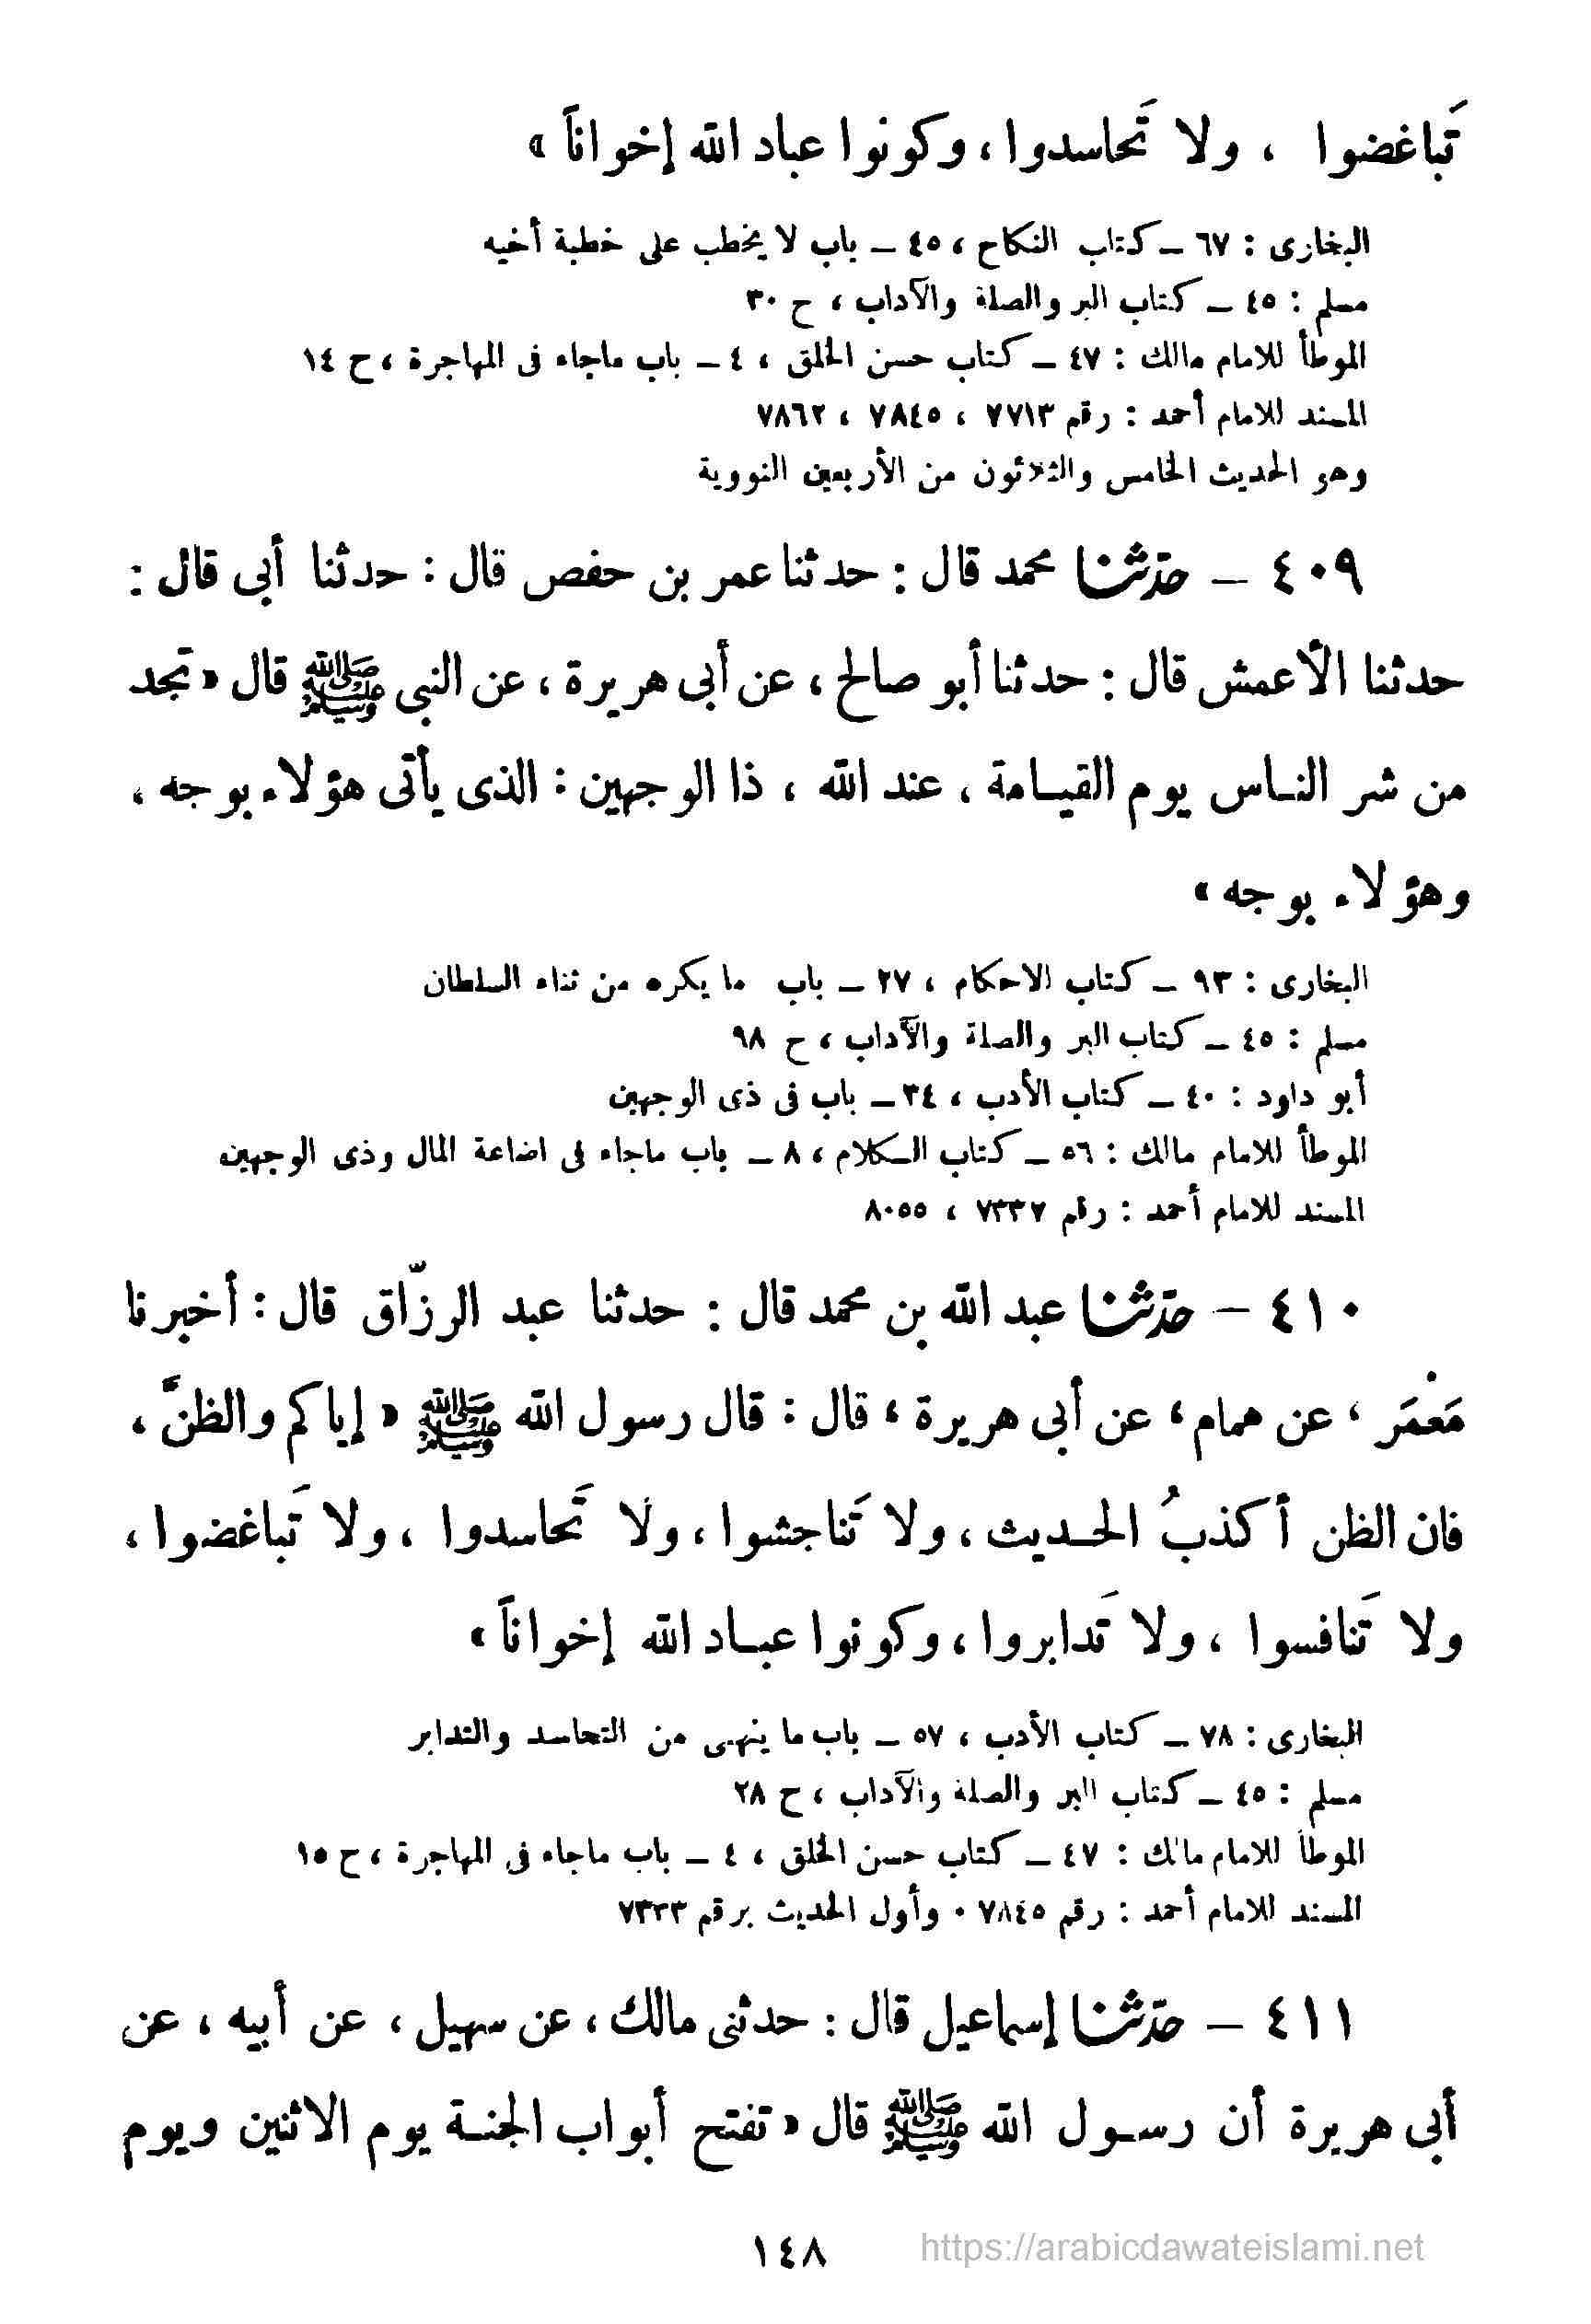 تَباغضوا ، ولا تَحاسدوا ، وكونوا عباد الله إخواناً »
البخارى : ٦٧ ـ كتاب النكاح ، ٤٥ ـ باب لا يخطب على خطبة أخيه
مسلم : ٤٥ ـ كتاب البر والصلة والآداب ، ح ٣٠
الموطأ للامام مالك : ٤٧ ـ كتاب حسن الخلق ، ٤ ـ باب ماجاء فى المهاجرة ، ح ١٤
المسند للامام أحمد : رقم ٧٧١٣ ، ٧٨٤٥ ، ٧٨٦٢
وهو الحديث الخامس والثلاثون من الأربعين النووية
٤٠٩ ـ حدّثنا محمد قال : حدثنا عمر بن حفص قال : حدثنا أبى قال :
حدثنا الأعمش قال : حدثنا أبو صالح ، عن أبى هريرة ، عن النبى ﷺ قال « تجد
من شر النـاس يوم القيـامة ، عند الله ، ذا الوجهين : الذى يأتى هؤلاء بوجه ،
وهؤلاء بوجه »
البخارى : ٩٣ ـ كتاب الاحكام ، ٢٧ ـ باب ما يكره من ثناء السلطان
مسلم : ٤٥ ـ كتاب البر والصلة والآداب ، ح ٩٨
أبو داود : ٤٠ ـ كتاب الأدب ، ٣٤ ـ باب فى ذى الوجهين
الموطأ للامام مالك : ٥٦ ـ كتاب الـكلام ، ٨ ـ باب ماجاء فى اضاعة المال وذى الوجهين
المسند للامام أحمد : رقم ٧٣٣٧ ، ٨٠٥٥
٤١٠ ـ حدّثنا عبد الله بن محمد قال : حدثنا عبد الرزّاق قال : أخبرنا
مَعْمَر ، عن همام ، عن أبى هريرة ، قال : قال رسول الله ﷺ « إياكم والظنَّ ،
فان الظن أكذبُ الحـديث ، ولا تَناجشوا ، ولا تَحاسدوا ، ولا تَباغضوا ،
ولا تَنافسوا ، ولا تَدابروا ، وكونوا عبـاد الله إخواناً »
البخارى : ٧٨ ـ كتاب الأدب ، ٥٧ ـ باب ما ينهى من التحاسد والتدابر
مسلم : ٤٥ ـ كتاب البر والصلة والآداب ، ح ٢٨
الموطأ للامام مالك : ٤٧ ـ كتاب حسن الخلق ، ٤ ـ باب ماجاء فى المهاجرة ، ح ١٥
المسند للامام أحمد : رقم ٧٨٤٥ · وأول الحديث برقم ٧٣٣٣
٤١١ ـ حدّثنا إسماعيل قال : حدثنى مالك ، عن سهيل ، عن أبيه ، عن
أبى هريرة أن رسـول الله ﷺ قال « تفتح أبواب الجنـة يوم الاثنين ويوم
١٤٨ https://arabicdawateislami.net